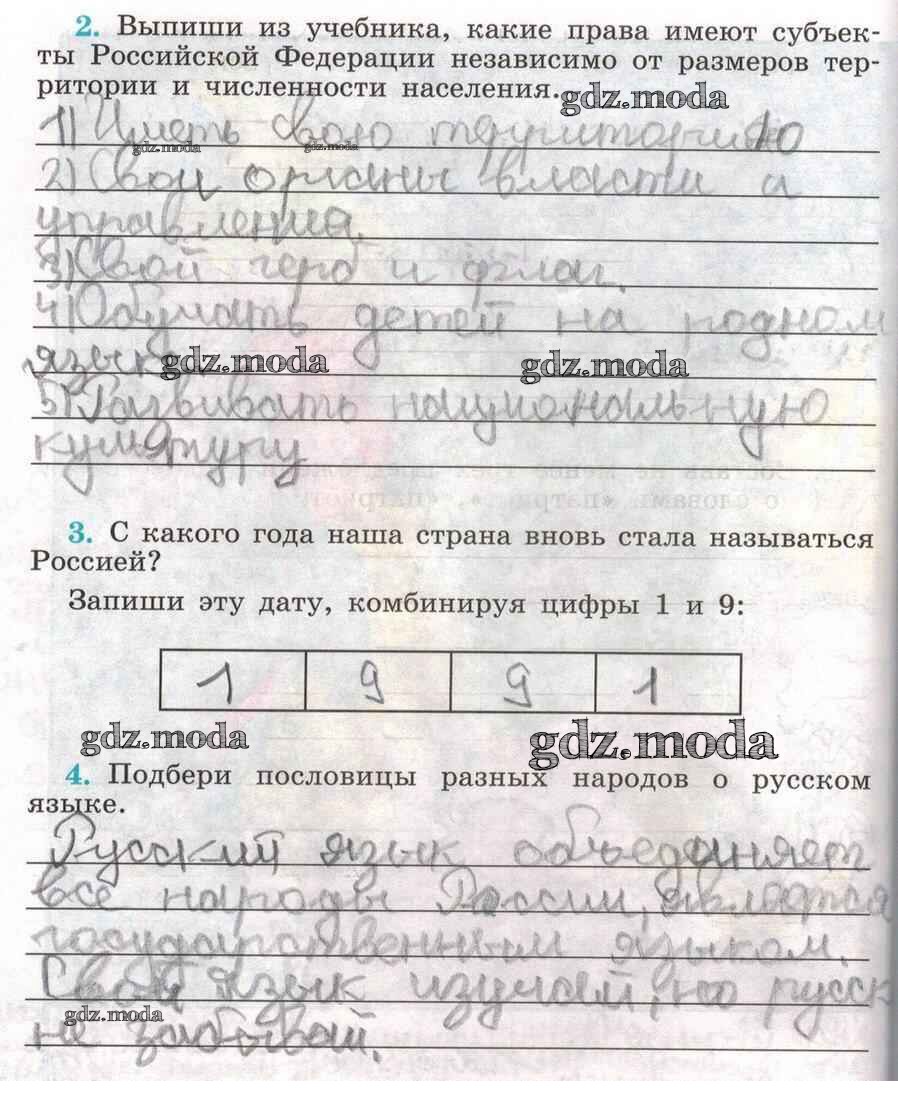 2. Выпиши из учебника, какие права имеют субъек-
ты Российской Федерации независимо от размеров тер-
ритории и численности населения.
gdz.moda
1) Иметь свою территорию
gdz.moda gdz.moda
2) Свои органы власти и
управления.
3) Свой герб и флаг.
4) Обучать детей на родном
язык
gdz.moda gdz.moda
5) Развивать национальную
культуру
3. С какого года наша страна вновь стала называться
Россией?
Запиши эту дату, комбинируя цифры 1 и 9:
1 9 9 1
gdz.moda gdz.moda
4. Подбери пословицы разных народов о русском
языке.
Русский язык объединяет
все народы России, является
государственным языком.
Свой язык изучай, но русск
gdz.moda
не забывай.